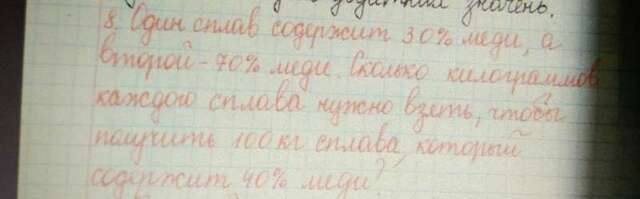 додатний значень.
8. Один сплав содержит 30% меди, а
второй - 70% меди. Сколько килограммов
каждого сплава нужно взять, чтобы
получить 100 кг сплава, который
содержит 40% меди?